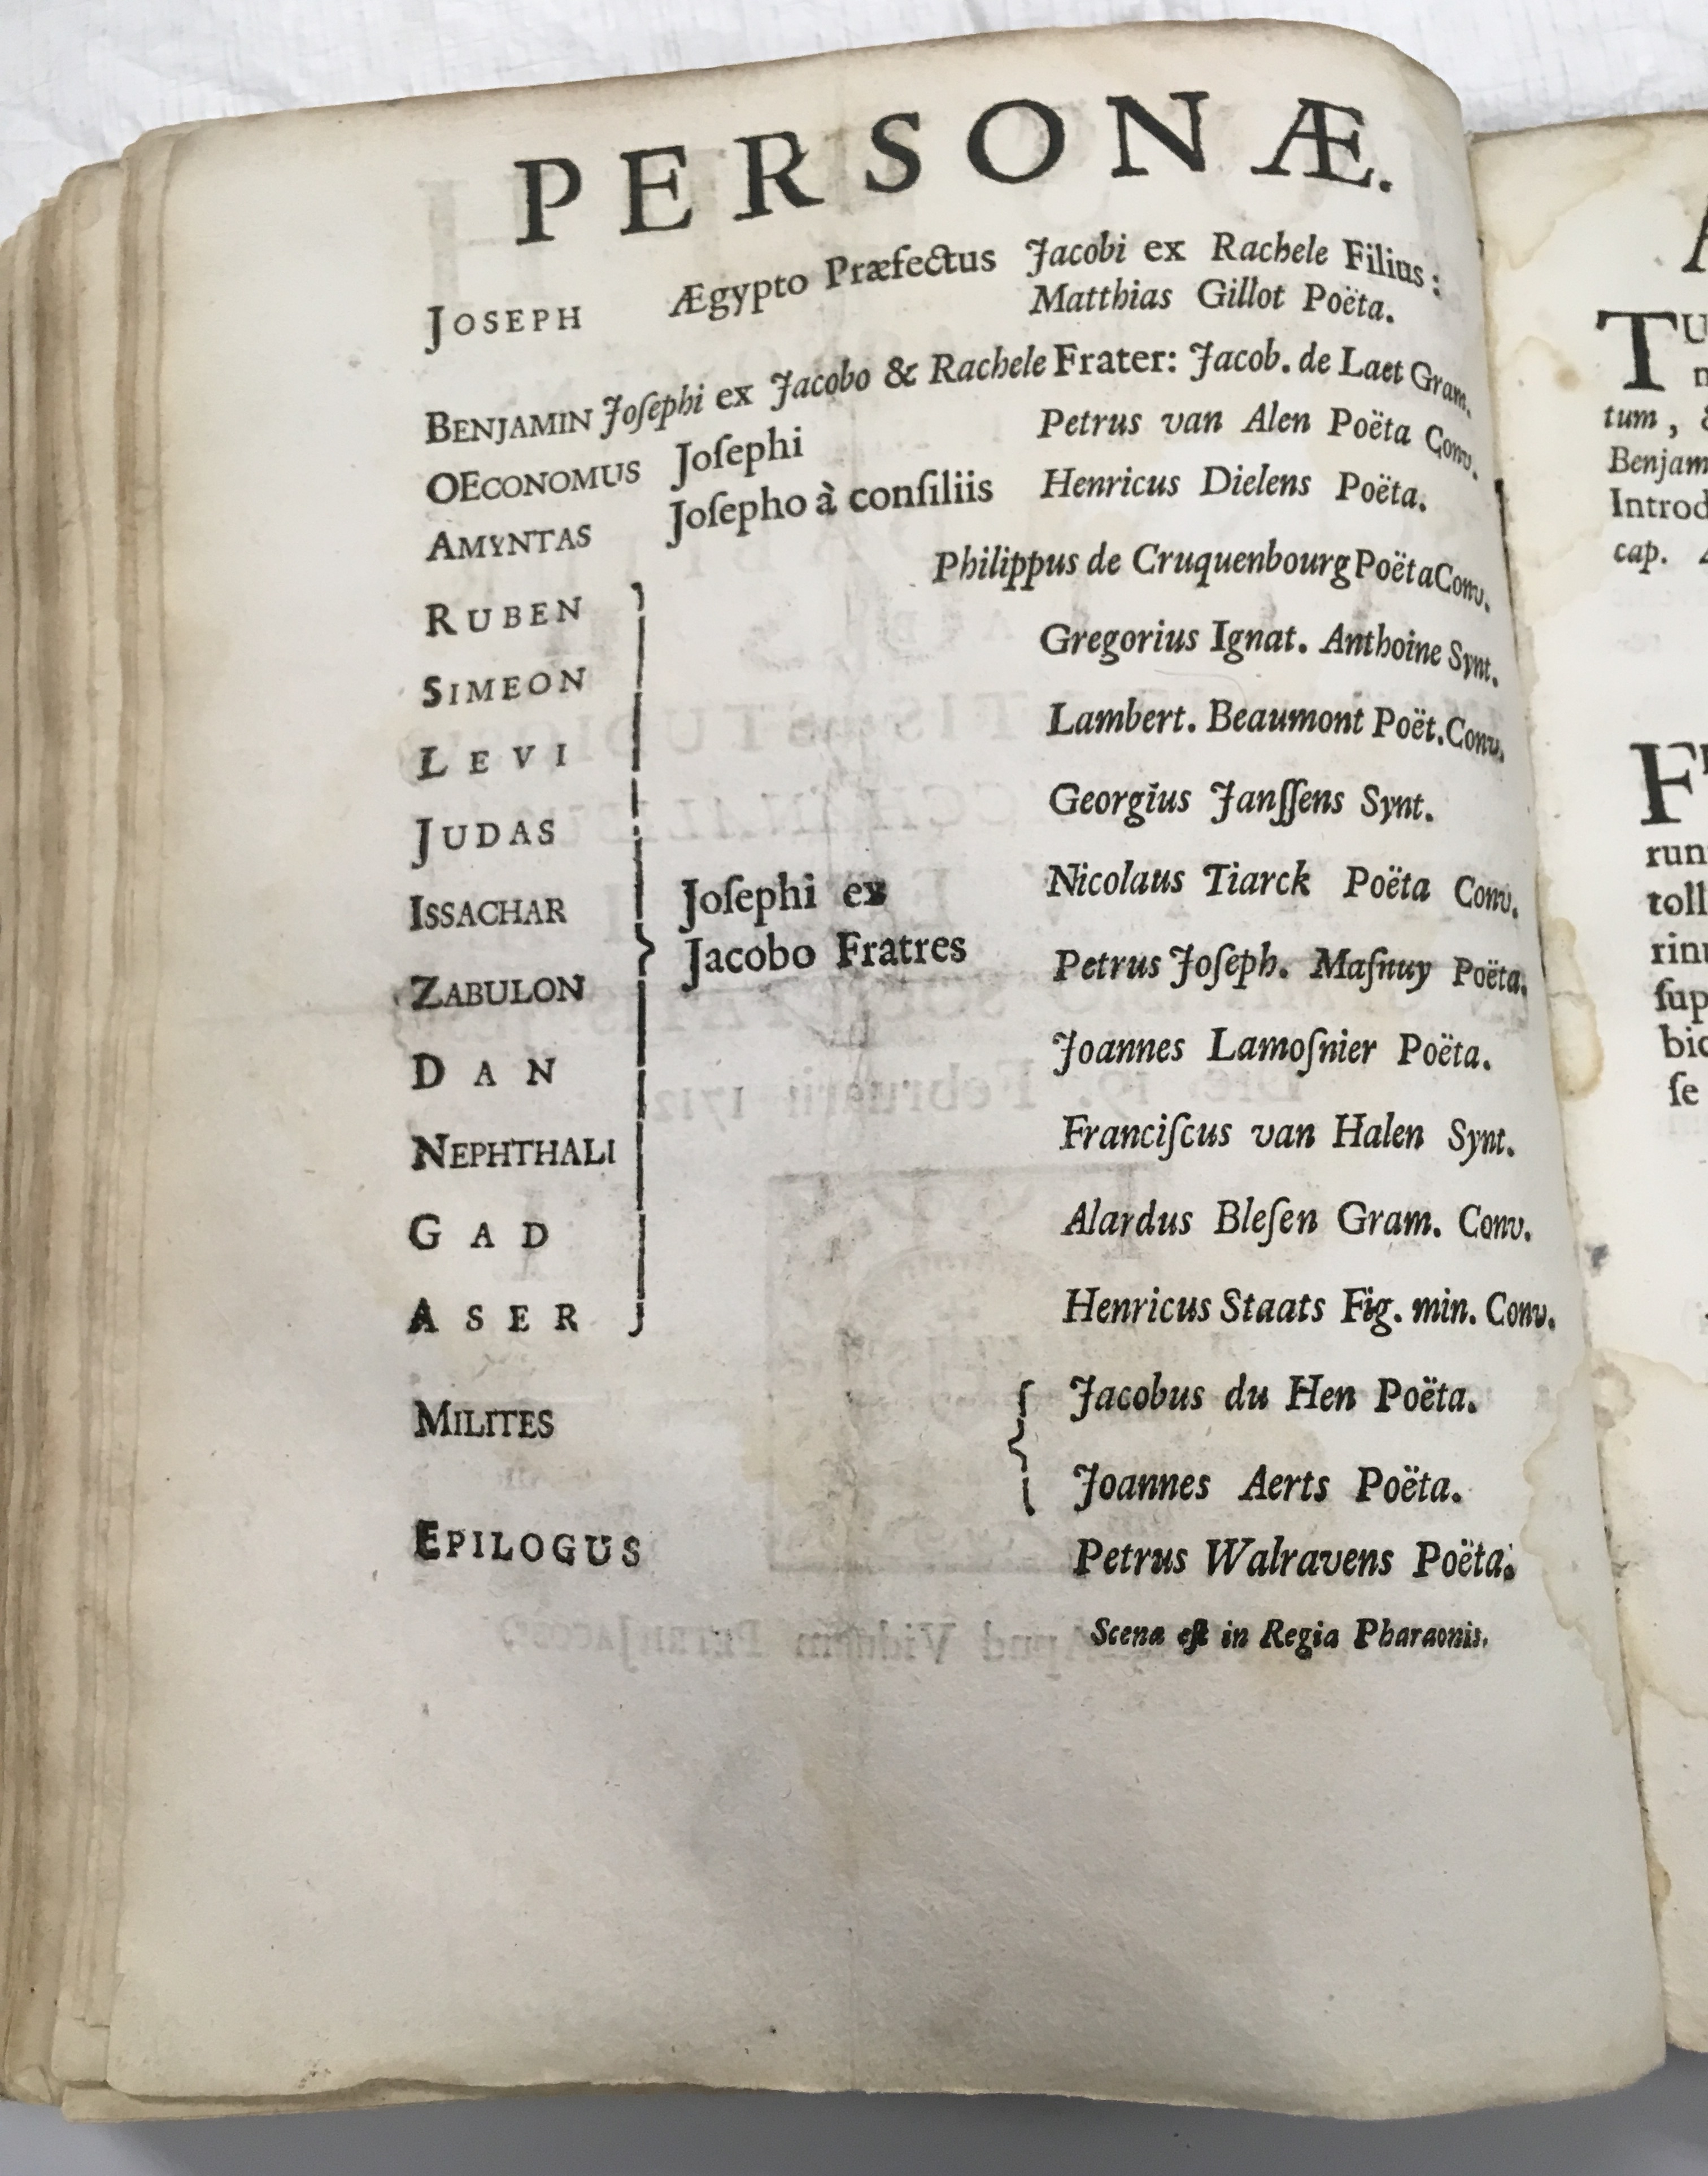 PERSONÆ.
JOSEPH Ægypto Præfectus Jacobi ex Rachele Filius:
Matthias Gillot Poëta.
BENJAMIN Joſephi ex Jacobo & Rachele Frater: Jacob. de Laet Gram.
OECONOMUS Joſephi Petrus van Alen Poëta Conv.
AMYNTAS Joſepho à conſiliis Henricus Dielens Poëta.
RUBEN Philippus de Cruquenbourg Poëta Conv.
SIMEON Gregorius Ignat. Anthoine Synt.
LEVI Lambert. Beaumont Poët. Conv.
JUDAS Georgius Janſſens Synt.
ISSACHAR Joſephi ex Nicolaus Tiarck Poëta Conv.
ZABULON Jacobo Fratres Petrus Joſeph. Maſnuy Poëta.
DAN Joannes Lamoſnier Poëta.
NEPHTHALI Franciſcus van Halen Synt.
GAD Alardus Bleſen Gram. Conv.
ASER Henricus Staats Fig. min. Conv.
MILITES Jacobus du Hen Poëta.
Joannes Aerts Poëta.
EPILOGUS Petrus Walravens Poëta.
Scena eſt in Regia Pharaonis.
tum,
Benjam
Introd
cap.
run
toll
rin
ſup
bic
ſe